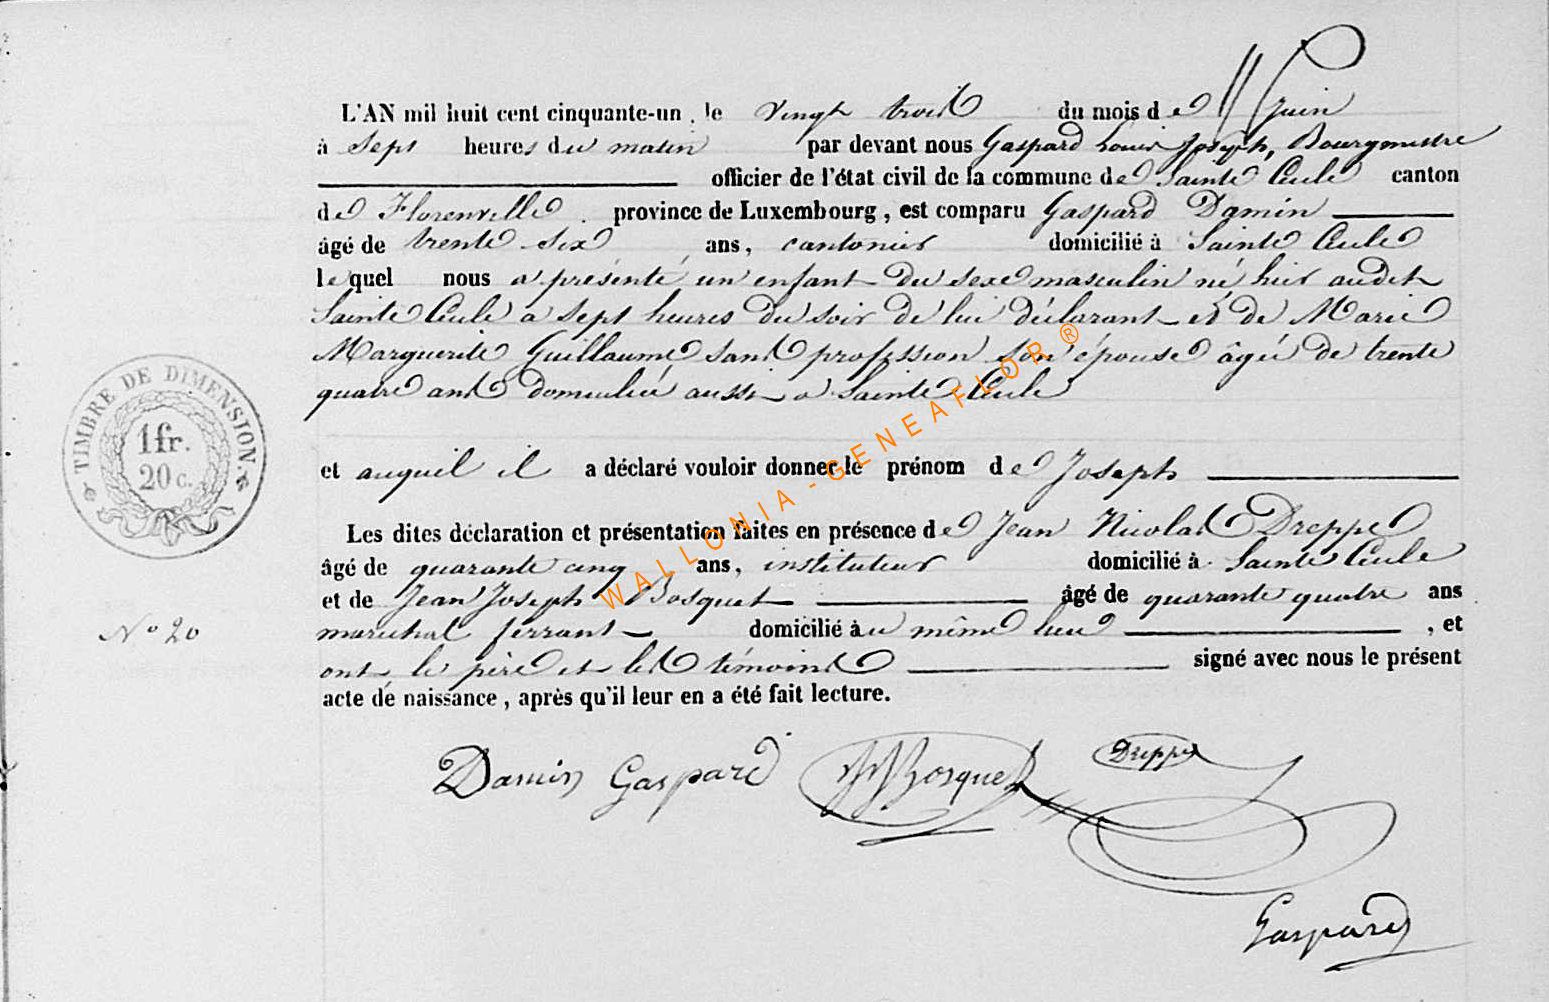 L'AN mil huit cent cinquante-un, le vingt trois du mois de Juin
à Sept heures du matin par devant nous Gaspard Louis Joseph, Bourgmestre
officier de l'état civil de la commune de Sainte Cécile canton
de Florenville, province de Luxembourg, est comparu Gaspard Damin
âgé de trente six ans, cantonier domicilié à Sainte Cécile
lequel nous a présenté un enfant du sexe masculin né hier audit
Sainte Cécile a sept heures du soir de lui déclarant et de Marie
Marguerite Guillaume sans profession son épouse âgée de trente
quatre ans domiciliée aussi a Sainte Cécile
et auquel il a déclaré vouloir donner le prénom de Joseph
Les dites déclaration et présentation faites en présence de Jean Nicolas Dreppe
âgé de quarante cinq ans, instituteur domicilié à Sainte Cécile
et de Jean Joseph Bosquet âgé de quarante quatre ans
maréchal ferrant domicilié au même lieu, et
ont le père et les témoins signé avec nous le présent
acte de naissance, après qu'il leur en a été fait lecture.
TIMBRE DE DIMENSION.
1 fr.
20 c.
N° 20
Damin Gaspard JJBosquet Dreppe
Gaspard
WALLONIA-GENEAFLOR®